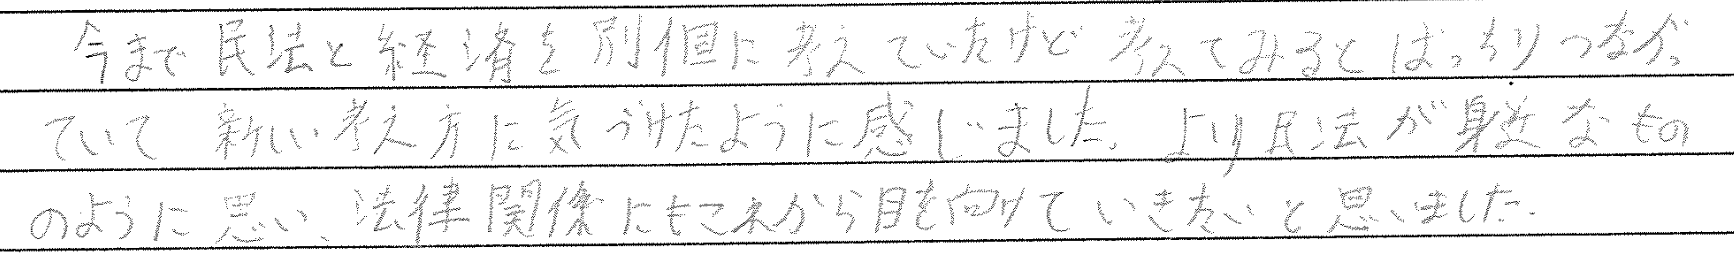 今まで民法と経済を別個に考えていたけど考えてみるとばっちりつながっ
ていて新しい考え方に気づけたように感じました。より民法が身近なもの
のように思い、法律関係にもこれから目を向けていきたいと思いました。